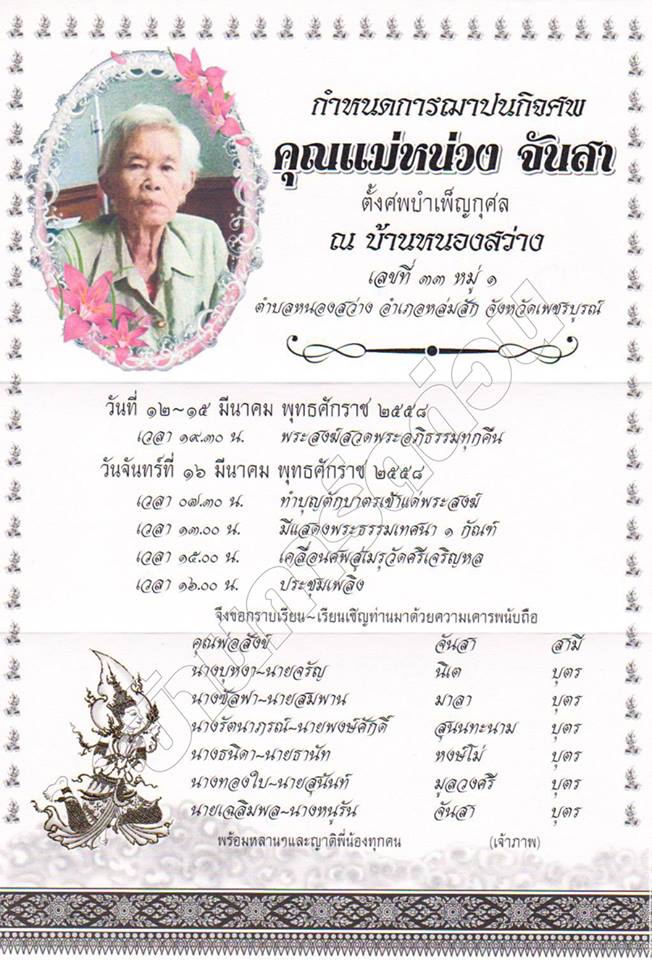 กำหนดการฌาปนกิจศพ
คุณแม่หน่วง จันสา
ตั้งศพบำเพ็ญกุศล
ณ บ้านหนองสว่าง
เลขที่ ๓๓ หมู่ ๑
ตำบลหนองสว่าง อำเภอหล่มสัก จังหวัดเพชรบูรณ์
วันที่ ๑๒~๑๕ มีนาคม พุทธศักราช ๒๕๕๘
เวลา ๑๙.๓๐ น. พระสงฆ์สวดพระอภิธรรมทุกคืน
วันจันทร์ที่ ๑๖ มีนาคม พุทธศักราช ๒๕๕๘
เวลา ๐๗.๓๐ น. ทำบุญตักบาตรเช้าแด่พระสงฆ์
เวลา ๑๓.๐๐ น. มีแสดงพระธรรมเทศนา ๑ กัณฑ์
เวลา ๑๕.๐๐ น. เคลื่อนศพสู่เมรุวัดศรีเจริญหล
เวลา ๑๖.๐๐ น. ประชุมเพลิง
จึงขอกราบเรียน~เรียนเชิญท่านมาด้วยความเคารพนับถือ
คุณพ่อสังข์ จันสา สามี
นางบุหงา~นายจรัญ นิเต บุตร
นางซัลฟา~นายสมพาน มาลา บุตร
นางรัตนาภรณ์~นายพงษ์ศักดิ์ สุนนทะนาม บุตร
นางธนิดา~นายธานัท หงษ์โม่ บุตร
นางทองใบ~นายสุนันท์ มูลวงศรี บุตร
นายเฉลิมพล~นางหนูรัน จันสา บุตร
พร้อมหลานๆและญาติพี่น้องทุกคน (เจ้าภาพ)